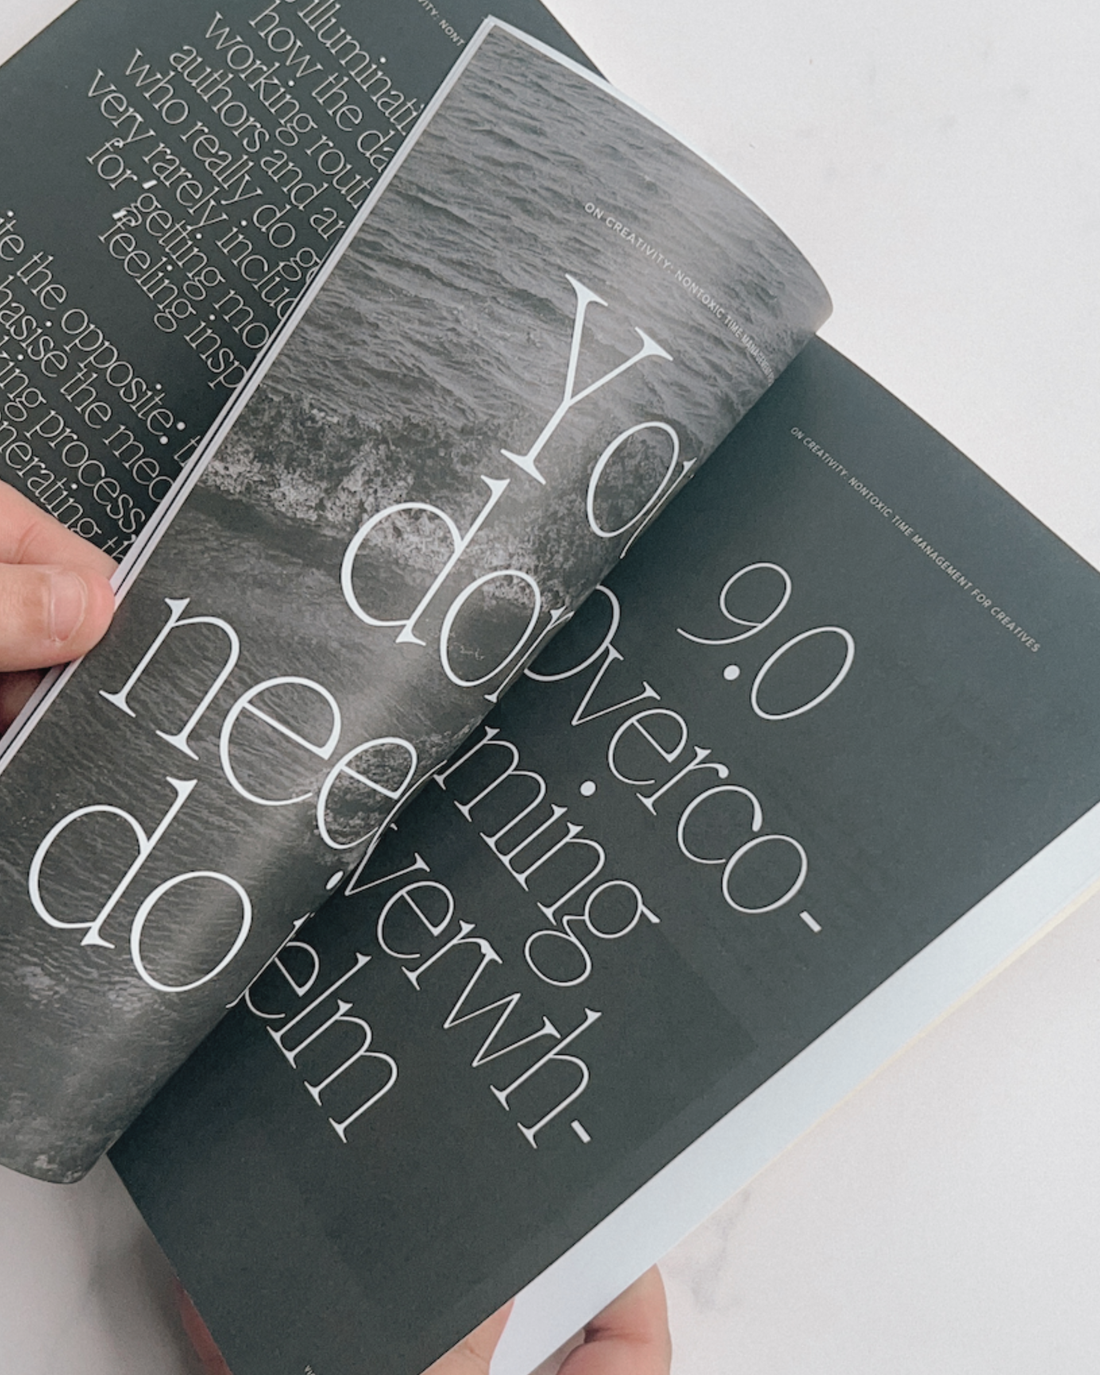 Illuminati
how the da
working rout
authors and ar
who really do g
very rarely inclu
for "getting mo
feeling insp
te the opposite: t
hasise the med
king process,
nerating th
ON CREATIVITY: NONTOXIC TIME MANAGEMENT
You
don
need
do
ON CREATIVITY: NONTOXIC TIME MANAGEMENT FOR CREATIVES
9.0
overco-
ming
overwh-
elm